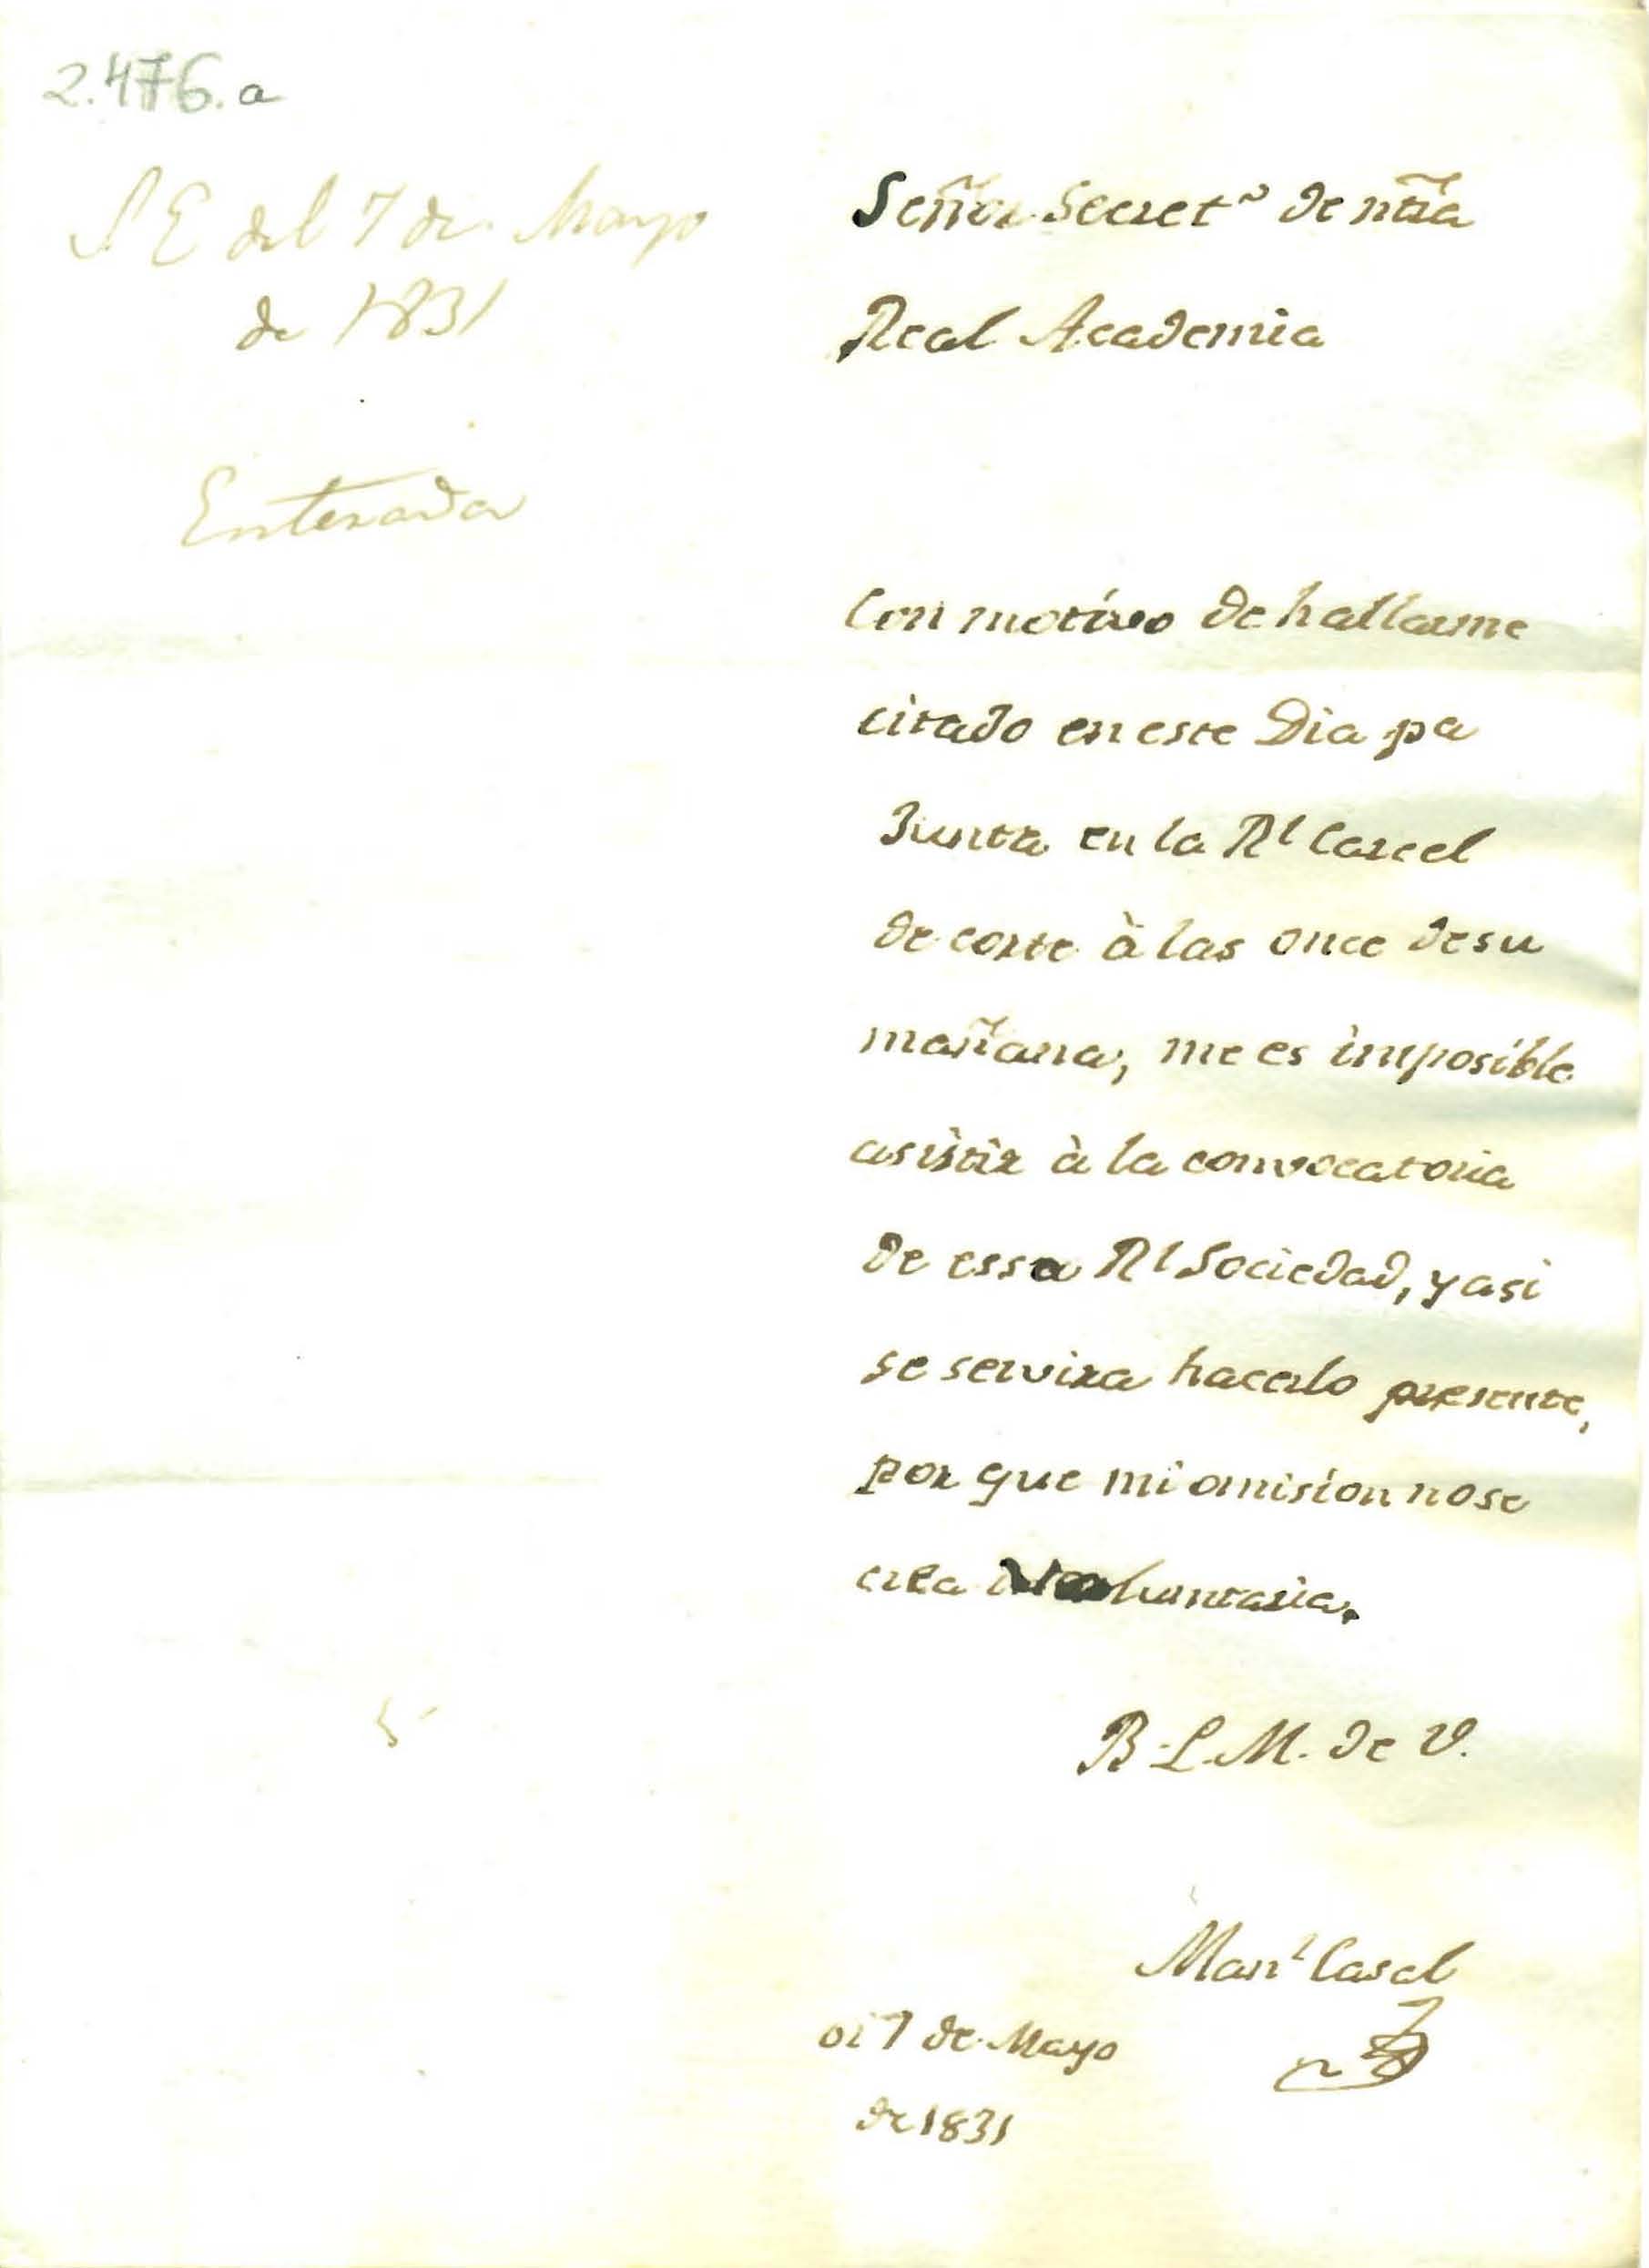 2.476.a
S E del 7 de Mayo
de 1831
Enterada
Señor Secret.º de ñtra
Real Academia
Con motivo de hallarme
citado en este Dia pa
Junta en la Rl Carcel
de corte à las once de su
mañana, me es imposible
asistir à la convocatoria
de essa Rl Sociedad, y asi
se servira hacerlo presente,
por que mi omision no se
crea
B. L. M. de V.
Manl Casal
oi 7 de Mayo
de 1831